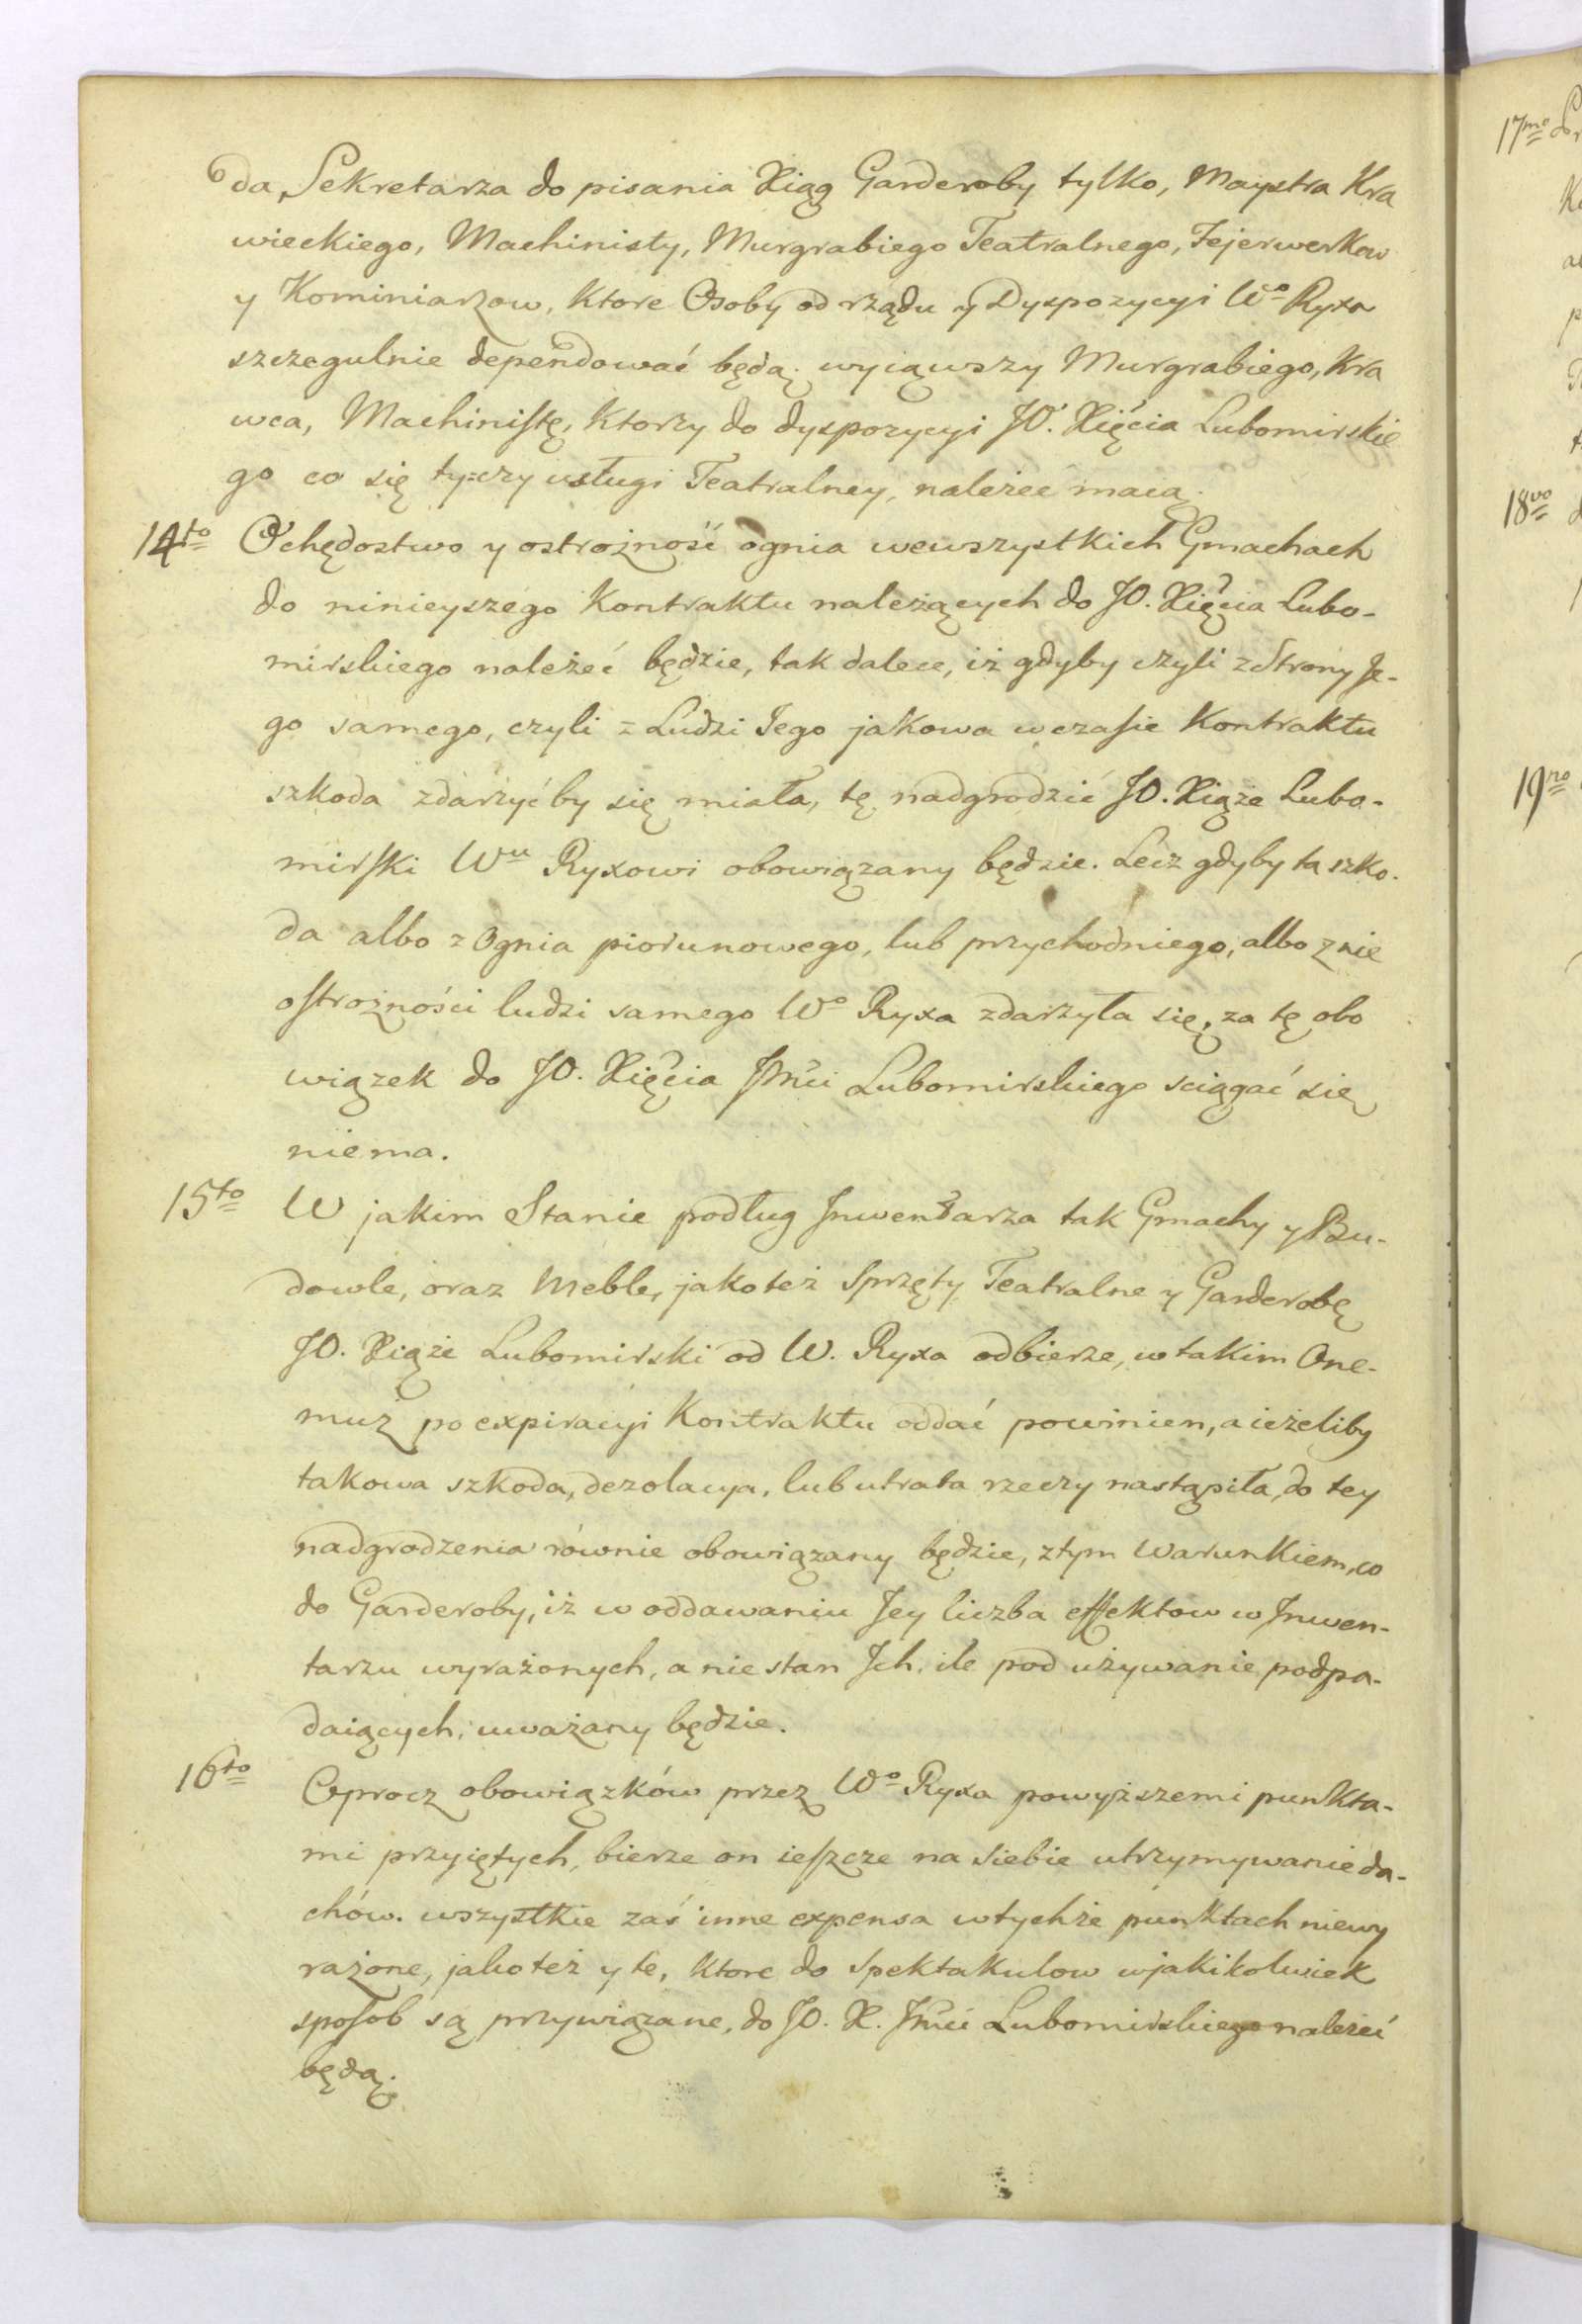 da, Sekretarza do pisania Xiąg Garderoby tylko, Maystra Kra
wieckiego, Machinisty, Murgrabiego Teatralnego, Fejerwerkow
y Kominiarzow, Ktore Osoby od rządu y Dyspozycyi Wo Ryxa
szczegulnie dependować będą, wyiąwszy Murgrabiego, Kra
wca, Machinistę, Ktorzy do dyspozycyi JO. Xięcia Lubomirskie
go co się ty=czy usługi Teatralney, należeć maią.
14to Ochędostwo y ostrożność ognia wewszystkich Gmachach
do ninieyszego Kontraktu należących do JO. Xięcia Lubo-
mirskiego należeć będzie, tak dalece, iż gdyby czyli z Strony Je-
go samego, czyli z Ludzi Jego jakowa w czasie Kontraktu
szkoda zdarzyć by się miała, tę nadgrodzić JO. Xiąże Lubo-
mirski Wu Ryxowi obowiązany będzie. Lecz gdyby ta szko-
da albo z Ognia piorunowego, lub przychodniego, albo z nie
ostrożności ludzi samego Wo Ryxa zdarzyła się, za tę obo
wiązek do JO. Xięcia Jmći Lubomirskiego sciągać się
niema.
15to W jakim Stanie podług Inwentarza tak Gmachy y Bu-
dowle, oraz Meble, jako też Sprzęty Teatralne y Garderobę
JO. Xiąże Lubomirski od W. Ryxa odbierze, w takim One-
muż po expiracyi Kontraktu oddać powinien, a ieżeliby
takowa szkoda, dezolacya, lub utrata rzeczy nastąpiła, do tey
nadgrodzenia równie obowiązany będzie, z tym Warunkiem, co
do Garderoby, iż w oddawaniu Jey liczba effektow w Inwen-
tarzu wyrażonych, a nie stan Ich, ile pod używanie podpa-
daiących, uważany będzie.
16to Oprocz obowiązków przez Wo Ryxa powyższemi punkta-
mi przyiętych, bierze on ieszcze na siebie utrzymywanie da-
chów. wszystkie zaś inne expensa w tychże punktach niewy
rażone, jako też y te, Ktore do Spektakulow w jakikolwiek
sposob są przywiązane, do JO. X. Jmći Lubomirskiego należeć
będą.
17mo
18vo
19no